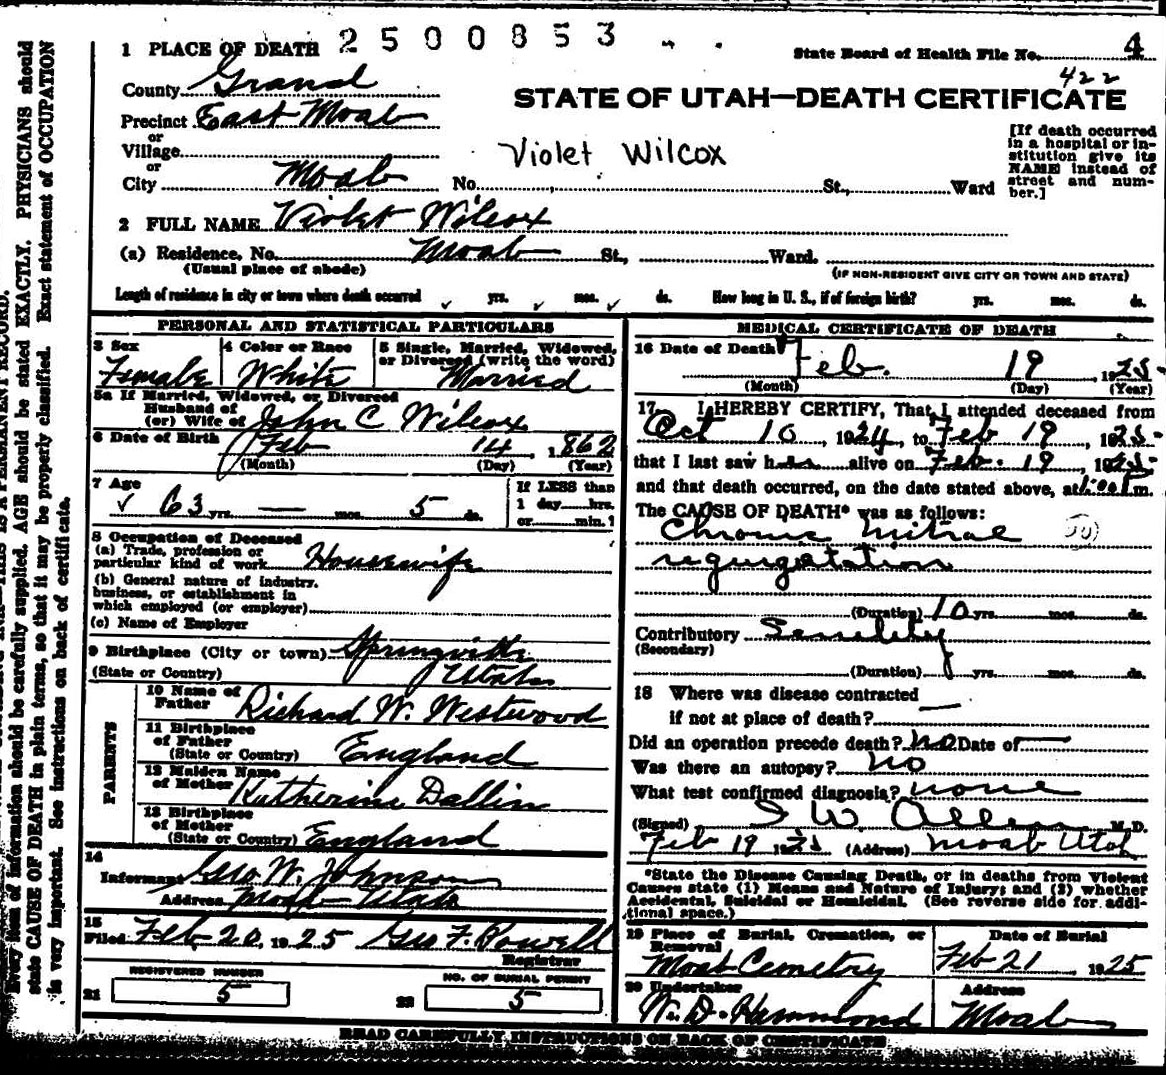 2500853
1 PLACE OF DEATH
State Board of Health File No. 4
422
County Grand
STATE OF UTAH—DEATH CERTIFICATE
Precinct East Moab
or
Village
or
City Moab No. St., Ward
Violet Wilcox
[If death occurred
in a hospital or in-
stitution give its
NAME instead of
street and num-
ber.]
2 FULL NAME Violet Wilcox
(a) Residence, No. Moab St., Ward.
(Usual place of abode) (IF NON-RESIDENT GIVE CITY OR TOWN AND STATE)
Length of residence in city or town where death occurred ✓ yrs. ✓ mos. ✓ ds. How long in U. S., if of foreign birth? yrs. mos. ds.
PERSONAL AND STATISTICAL PARTICULARS
3 Sex 4 Color or Race 5 Single, Married, Widowed,
or Divorced (write the word)
Female White Married
5a If Married, Widowed, or Divorced
Husband of
(or) Wife of John C Wilcox
6 Date of Birth Feb 14, 1862
(Month) (Day) (Year)
7 Age If LESS than
✓ 63 yrs. — mos. 5 ds. 1 day hrs.
or min.?
8 Occupation of Deceased
(a) Trade, profession or
particular kind of work Housewife
(b) General nature of industry,
business, or establishment in
which employed (or employer)
(c) Name of Employer
9 Birthplace (City or town) Springville
(State or Country) Utah
PARENTS
10 Name of
Father Richard W. Westwood
11 Birthplace
of Father
(State or Country) England
12 Maiden Name
of Mother Katherine Dallin
13 Birthplace
of Mother
(State or Country) England
14
Informant Geo W. Johnson
Address Moab Utah
15
Filed Feb 20, 1925 Geo F. Rowell
Registrar
REGISTERED NUMBER NO. OF BURIAL PERMIT
21 5 22 5
MEDICAL CERTIFICATE OF DEATH
16 Date of Death Feb. 19 1925
(Month) (Day) (Year)
17 I HEREBY CERTIFY, That I attended deceased from
Oct 10, 1924, to Feb 19, 1925
that I last saw her alive on Feb. 19, 1925
and that death occurred, on the date stated above, at m.
The CAUSE OF DEATH* was as follows:
Chronic mitral
regurgitation
(Duration) 10 yrs. mos. ds.
Contributory
(Secondary)
(Duration) yrs. mos. ds.
18 Where was disease contracted —
if not at place of death?
Did an operation precede death? no Date of —
Was there an autopsy? no
What test confirmed diagnosis? none
(Signed) Allen M. D.
Feb 19 1925 (Address) Moab Utah
*State the Disease Causing Death, or in deaths from Violent
Causes state (1) Means and Nature of Injury; and (2) whether
Accidental, Suicidal or Homicidal. (See reverse side for addi-
tional space.)
19 Place of Burial, Cremation, or
Removal Date of Burial
Moab Cemetry Feb 21, 1925
20 Undertaker Address
W. D. Hammond Moab
READ CAREFULLY INSTRUCTIONS ON BACK OF CERTIFICATE
IS A PERMANENT RECORD.
Every item of information should be carefully supplied. AGE should be stated EXACTLY. PHYSICIANS should
state CAUSE OF DEATH in plain terms, so that it may be properly classified. Exact statement of OCCUPATION
is very important. See instructions on back of certificate.